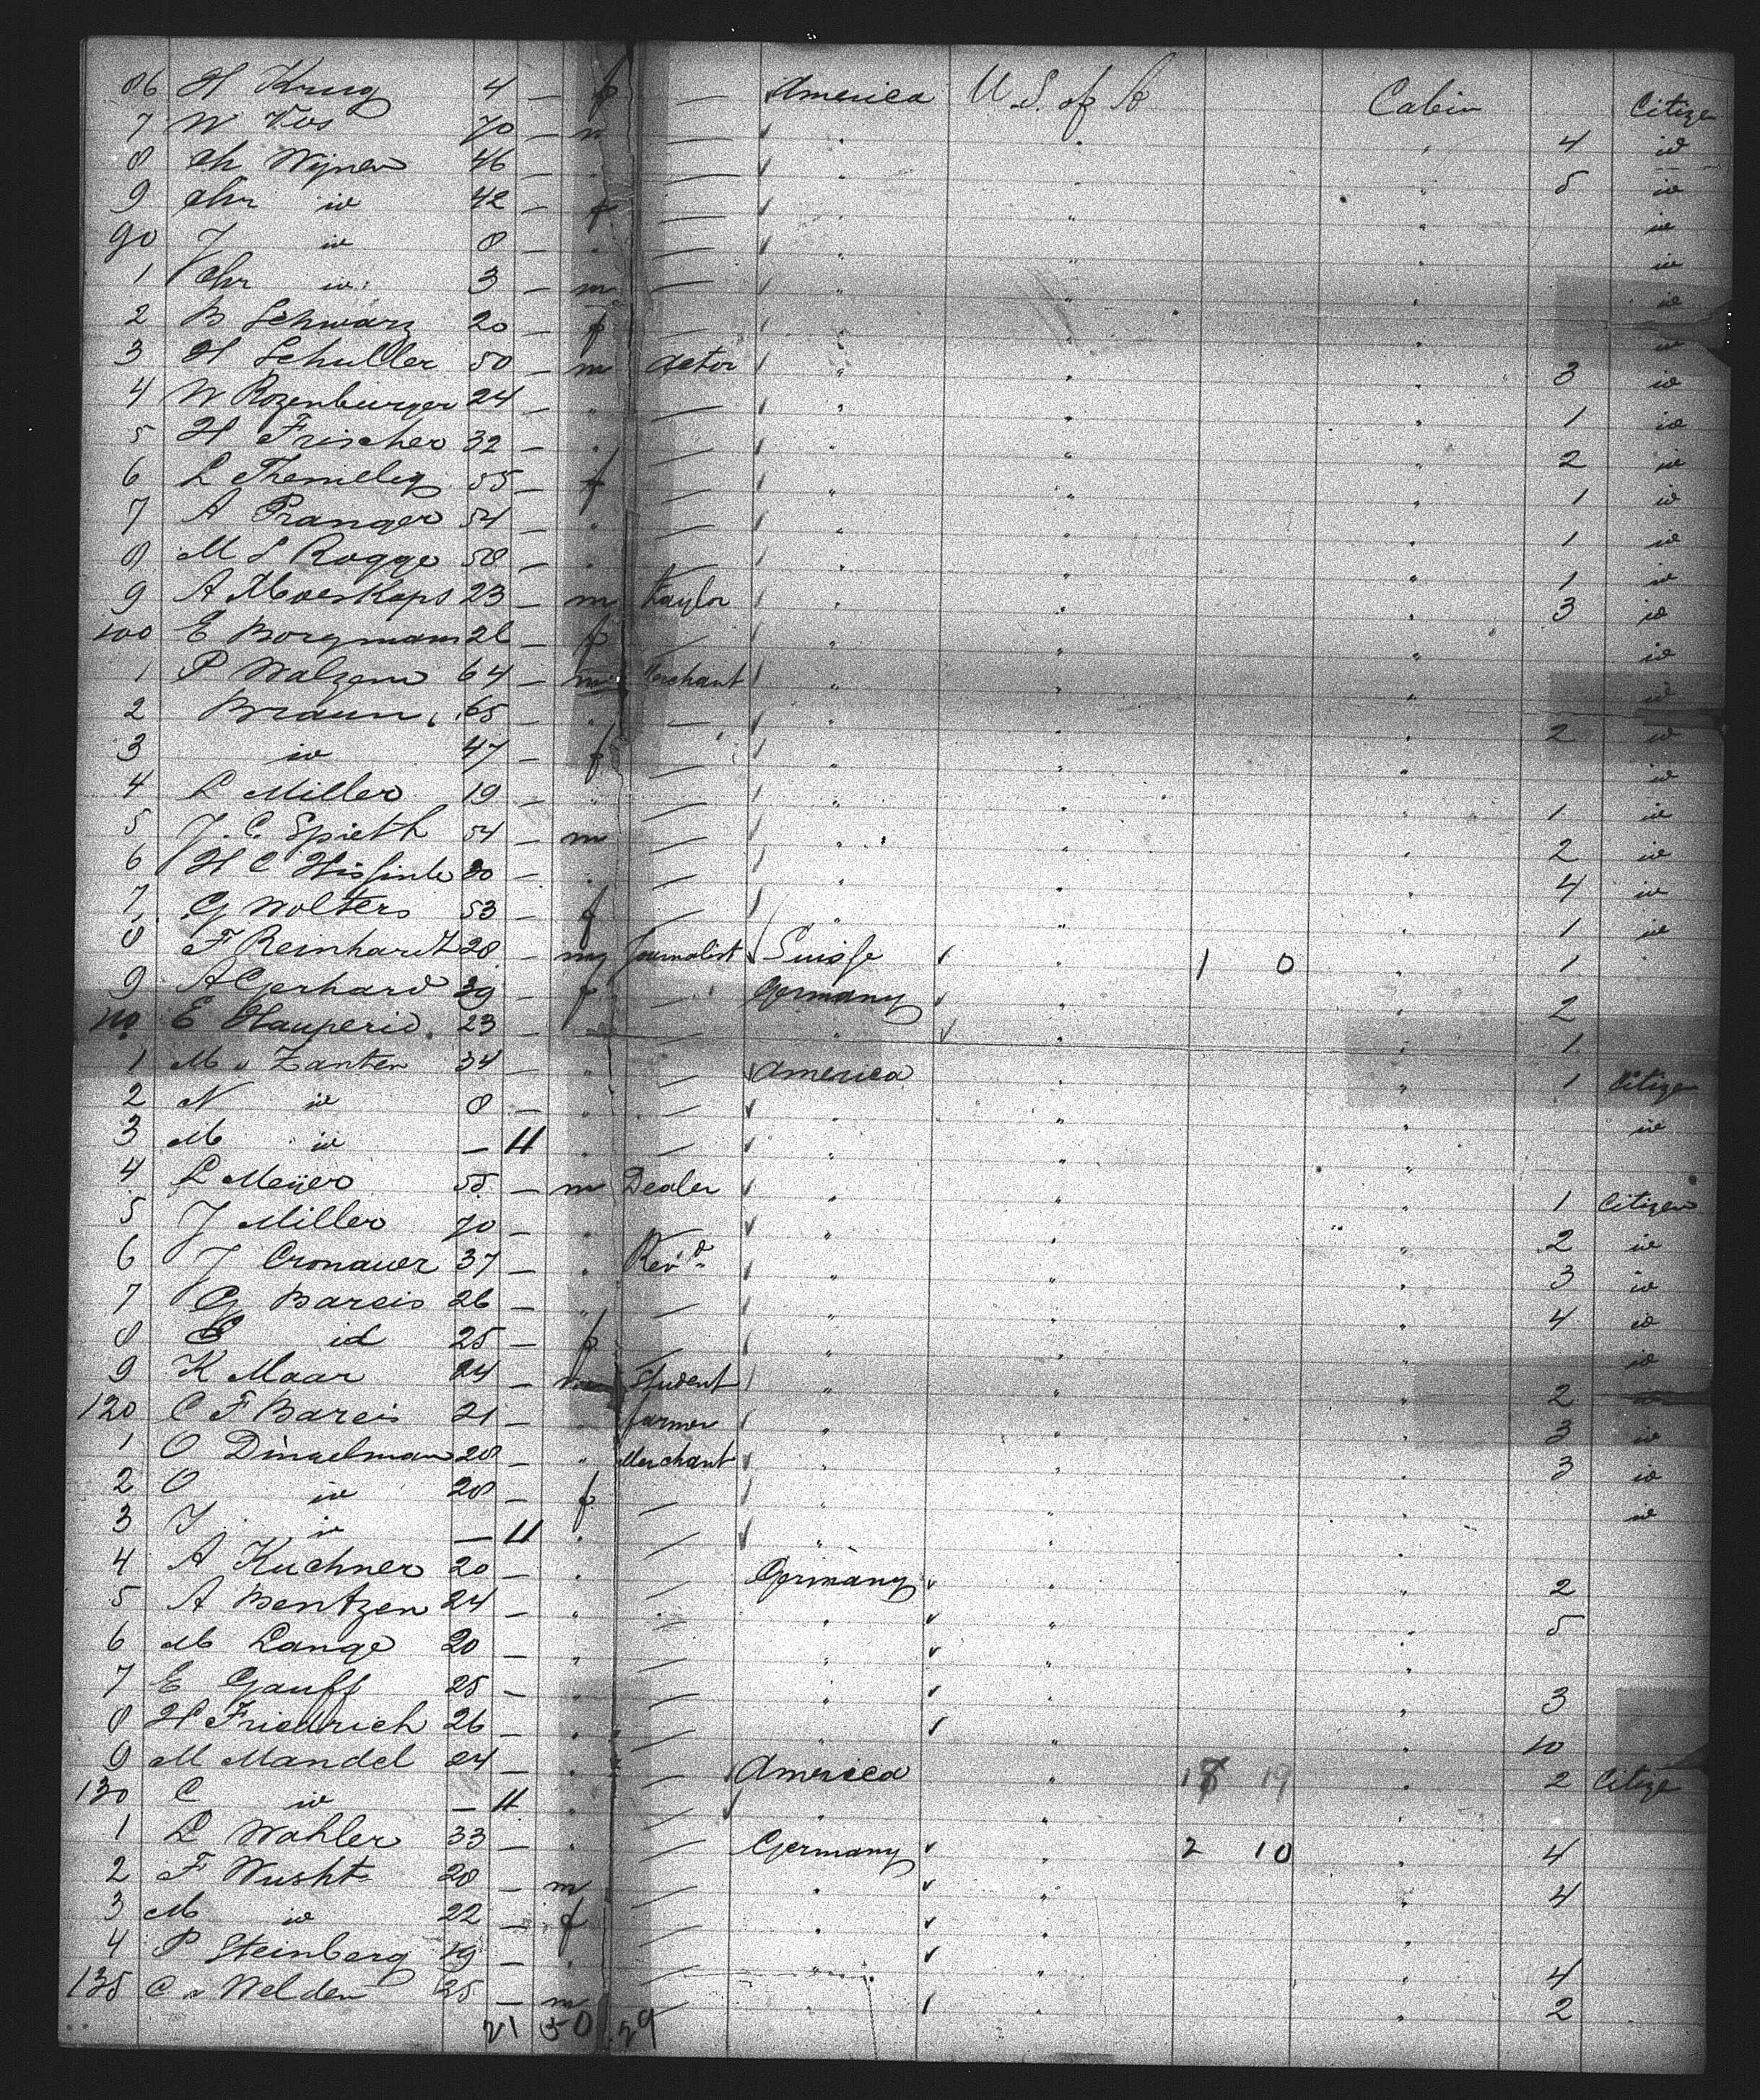 86 H Krug 4 — f — America U.S. of A Cabin Citizen
7 W Vos 70 — m — " " " 4 id
8 Ch Wijner 46 — " — " " " 5 id
9 Chr id 42 — f — " " " id
90 J id 8 — " — " " " id
1 Chr id 3 — m — " " " id
2 B Schwarz 20 — f — " " " id
3 H Schuller 50 — m actor " " " 3 id
4 W Rozenburger 24 — " — " " " 1 id
5 H Frischer 32 — " — " " " 2 id
6 L 55 — f — " " " 1 id
7 A Pranger 54 — " — " " " 1 id
8 M S Rogge 58 — " — " " " 1 id
9 A Moerkops 23 — m taylor " " " 3 id
100 E Borgmann 26 — f — " " " id
1 P Walzem 64 — m Merchant " " " id
2 Braun 65 — " — " " " 2 id
3 id 47 — f — " " " id
4 L Miller 19 — " — " " " 1 id
5 J. C. Spieth 54 — m — " " " 2 id
6 H C 30 — " — " " " 4 id
7 G Wolters 53 — f — " " " 1 id
8 F Reinhardt 28 — m Journalist Suisse " 1 0 " 1
9 A Gerhard 39 — f — Germany " " 2
110 E 23 — " — " " " 1
1 M v Zanten 34 — " — America " " 1 Citizen
2 N id 8 — " — " " " id
3 M id — 11 " — " " "
4 L Meijer 55 — m Dealer " " " 1 Citizen
5 J Miller 70 — " " " " 2 id
6 J Cronauer 37 — " Revd " " " 3 id
7 G Bareis 26 — " — " " " 4 id
8 id 25 — f — " " " id
9 K Maar 24 — m Student " " " 2
120 C F Bareis 21 — " farmer " " " 3 id
1 O Dingelman 28 — " Merchant " " " 3 id
2 O id 28 — f — " " " id
3 J id — 11 " — " " "
4 A Kuchner 20 — " — Germany " " 2
5 A Bentzen 24 — " — " " " 5
6 M Lange 20 " — " " "
7 E Gauff 25 — " — " " " 3
8 H Friedrich 26 — " — " " " 10
9 M Mandel 24 — " — America " 18 19 " 2 Citizen
130 C id — 11 " — " " "
1 L Wahler 33 — " — Germany " 2 10 " 4
2 F Wusht 28 — m — " " " 4
3 M id 22 — f — " " "
4 P Steinberg 19 — " — " " " 4
135 C v Welden 25 — m — " " " 2
21 50 29